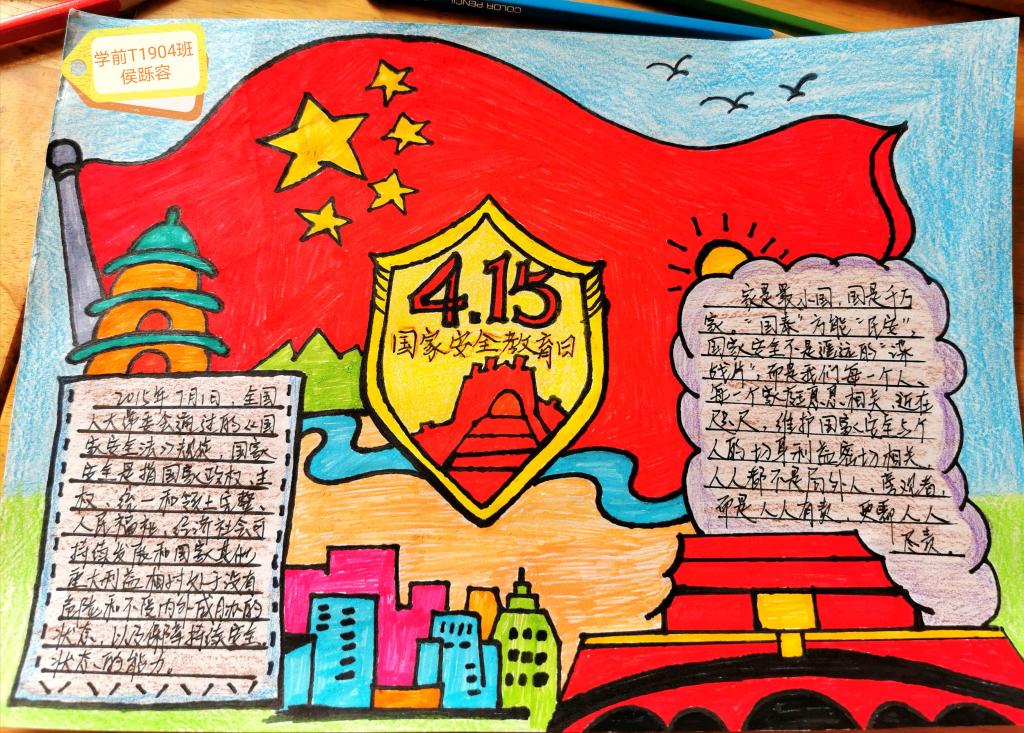 COLOR PENCIL
学前T1904班
侯跞容
4.15
国家安全教育日
2015年7月1日,全国
人大常委会通过的《国
家安全法》规定,国家
安全是指国家政权、主
权、统一和领土完整、
人民福祉、经济社会可
持续发展和国家其他
重大利益相对处于没有
危险和不受内外威胁的
状态,以及保障持续安全
状态的能力。
家是最小国,国是千万
家。“国泰”方能“民安”,
国家安全不是遥远的“谍
战片”,而是我们每一个人、
每一个家庭息息相关,近在
咫尺,维护国家安全与个
人的切身利益密切相关,
人人都不是局外人、旁观者,
而是人人有责,更需人人
尽责。